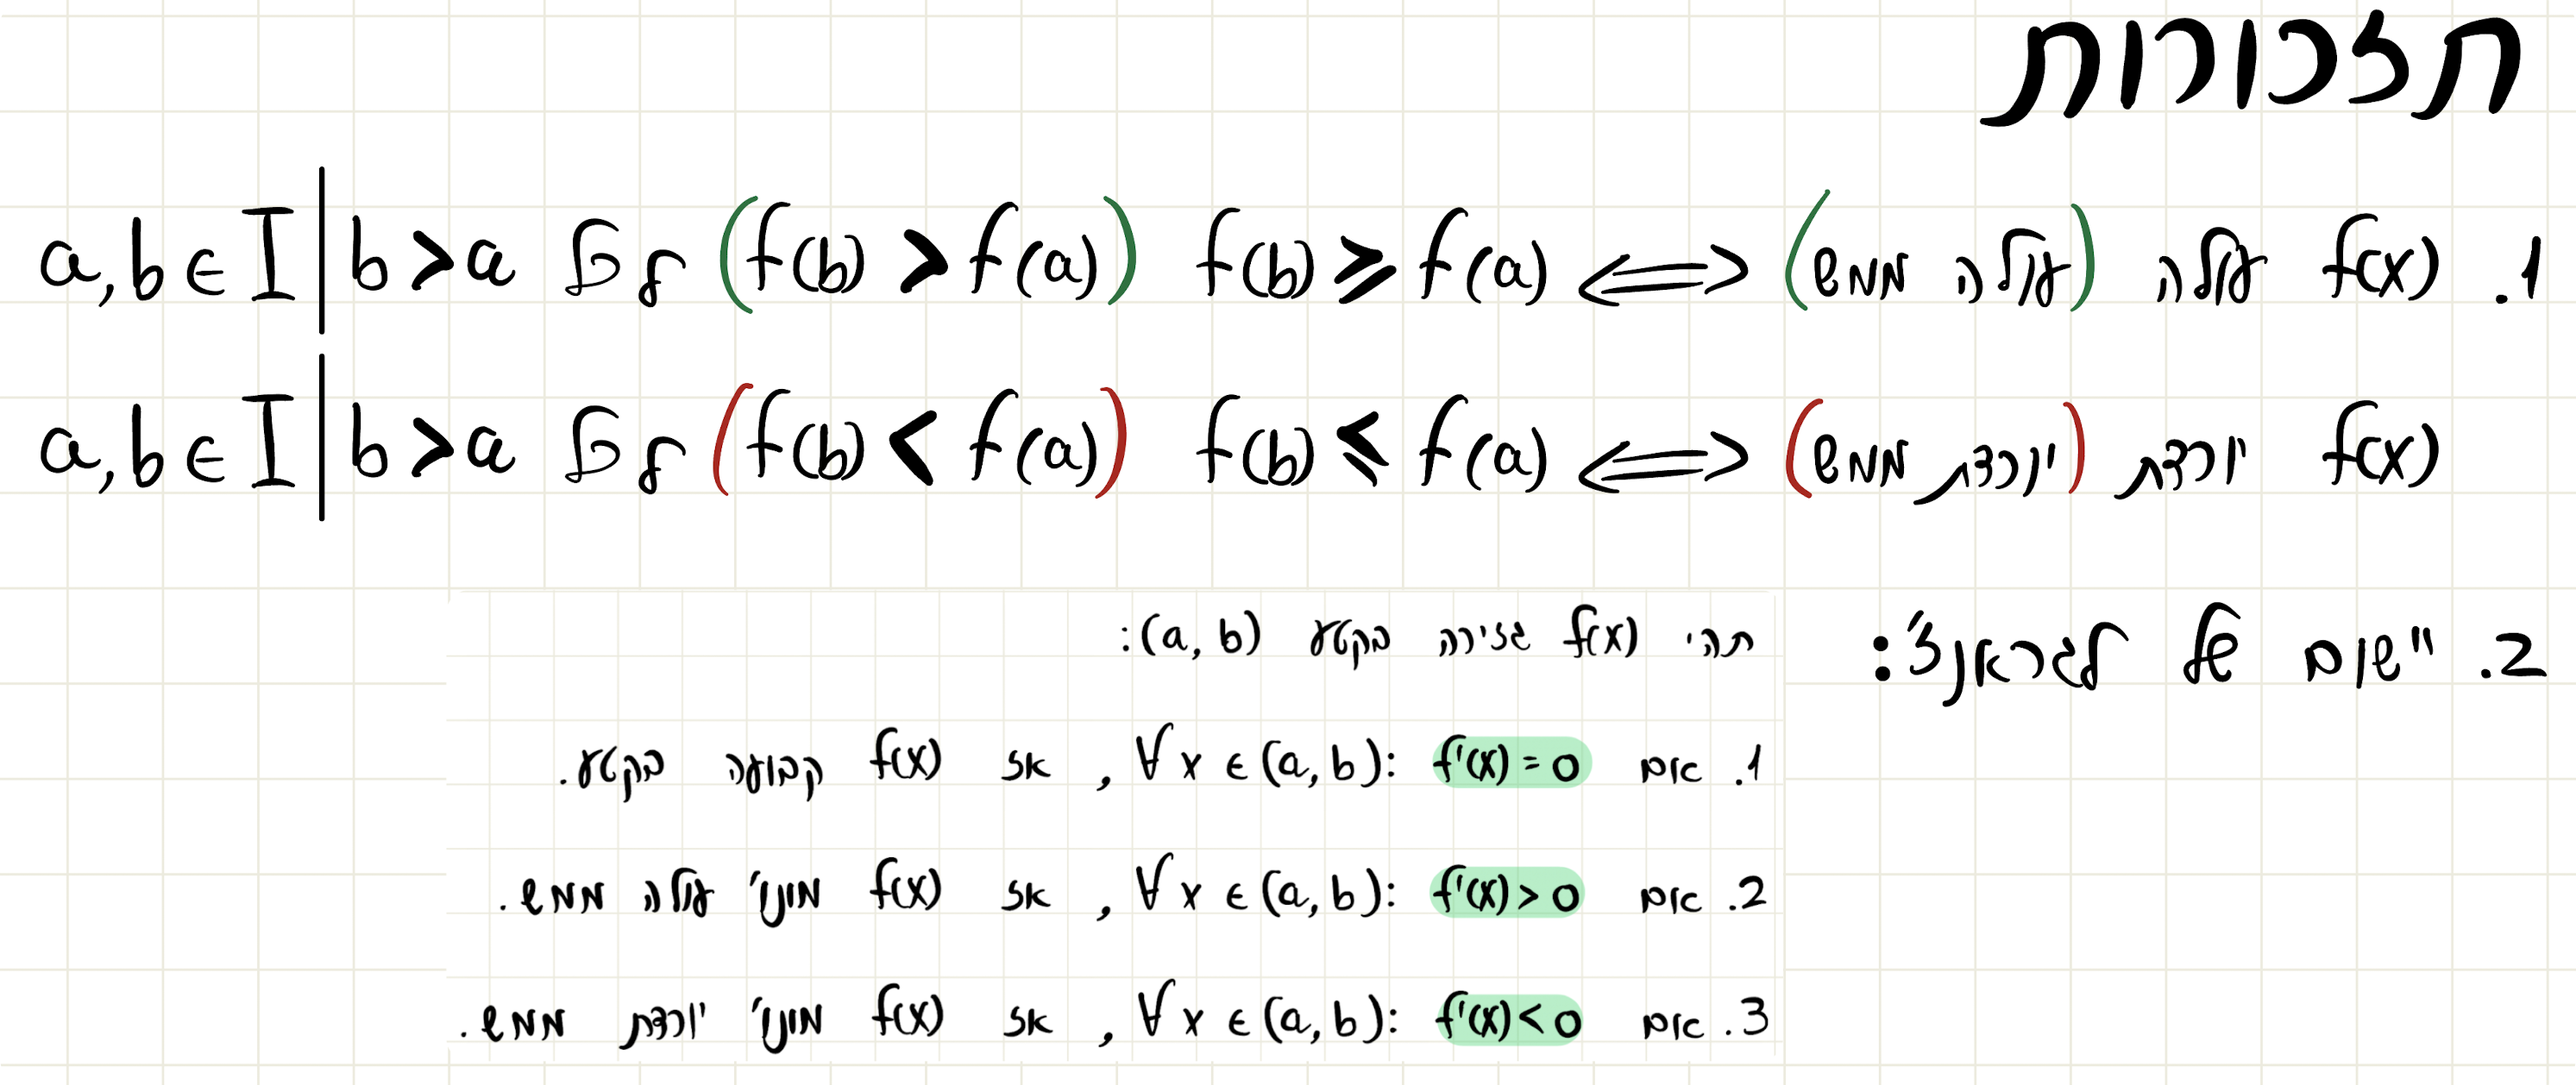 תזכורות
1. f(x) עולה (עולה ממש) ⟺ f(b) ⩾ f(a) (f(b) > f(a)) לכל a,b ∈ I | b > a
f(x) יורדת (יורדת ממש) ⟺ f(b) ⩽ f(a) (f(b) < f(a)) לכל a,b ∈ I | b > a
2. יישום של לגראנצ':
תהי f(x) גזירה בקטע (a, b):
1. אם ∀x ∈ (a, b): f'(x) = 0, אז f(x) קבועה בקטע.
2. אם ∀x ∈ (a, b): f'(x) > 0, אז f(x) מונו' עולה ממש.
3. אם ∀x ∈ (a, b): f'(x) < 0, אז f(x) מונו' יורדת ממש.